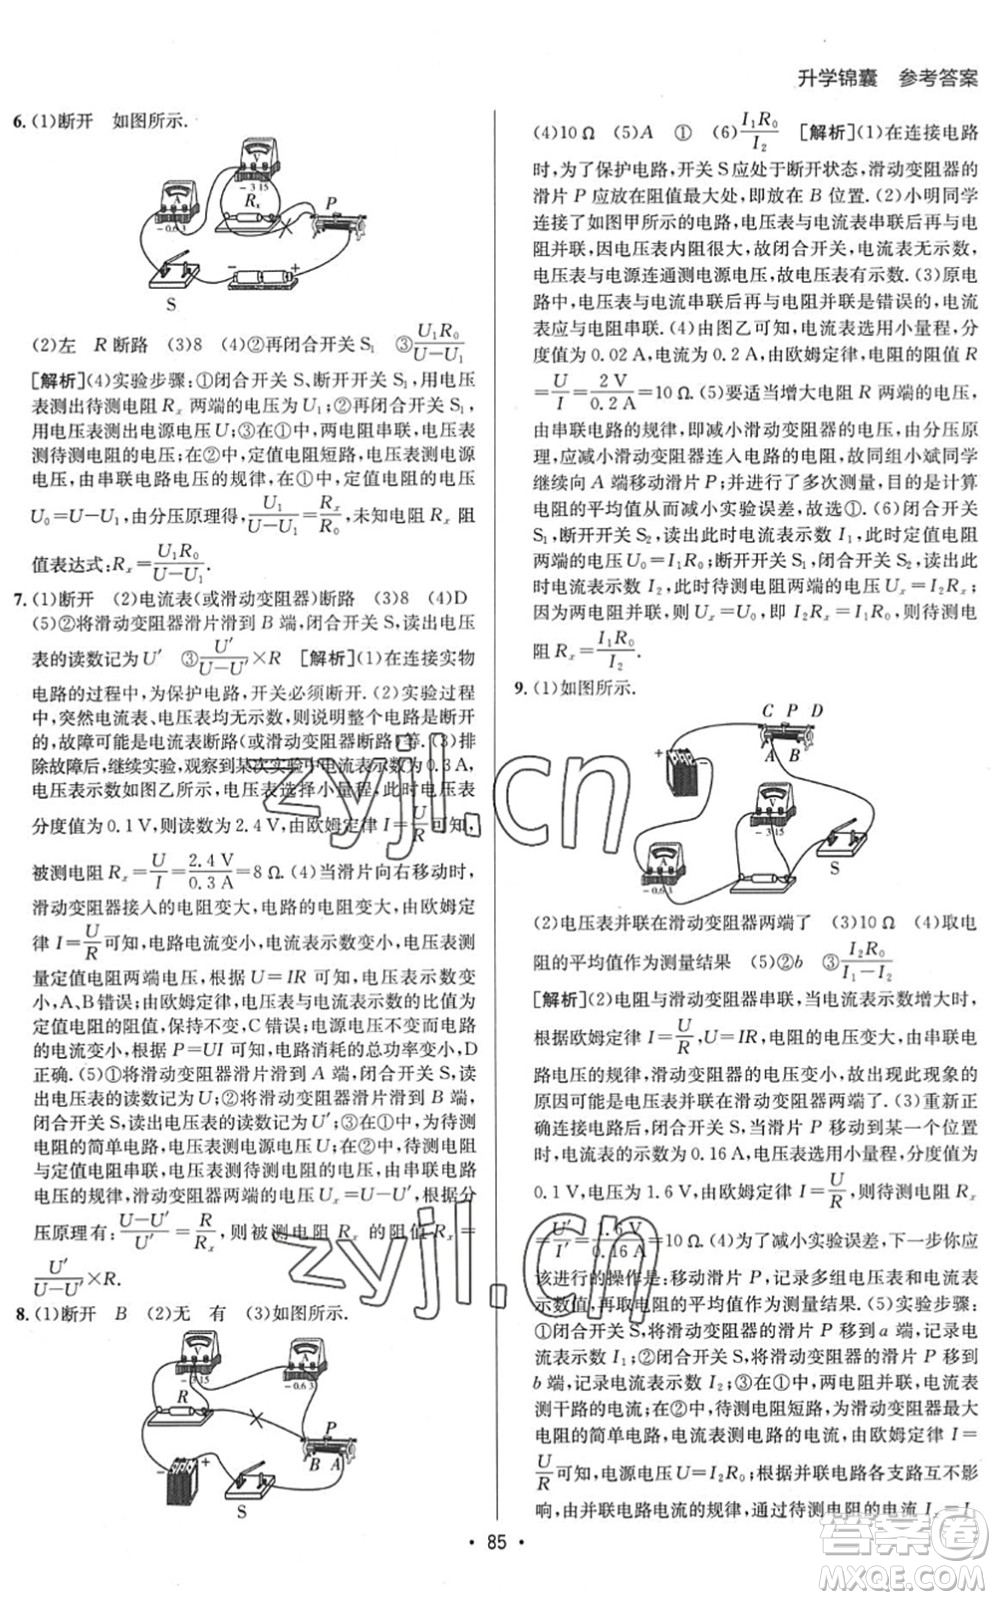 升学锦囊 参考答案
6.(1)断开 如图所示.
V
- 3 15
A
- 0.6 3
Rₓ
P
- +
S
(2)左 R断路 (3)8 (4)②再闭合开关S₁ ③U₁R₀/(U-U₁)
[解析](4)实验步骤:①闭合开关S、断开开关S₁,用电压
表测出待测电阻Rₓ两端的电压为U₁;②再闭合开关S₁,
用电压表测出电源电压U;③在①中,两电阻串联,电压表
测待测电阻的电压;在②中,定值电阻短路,电压表测电源
电压,由串联电路电压的规律,在①中,定值电阻的电压
U₀=U-U₁,由分压原理得:U₁/(U-U₁)=Rₓ/R₀,未知电阻阻
值表达式:Rₓ=U₁R₀/(U-U₁).
7.(1)断开 (2)电流表(或滑动变阻器)断路 (3)8 (4)D
(5)②将滑动变阻器滑片滑到B端,闭合开关S,读出电压
表的读数记为U′ ③U′/(U-U′)×R [解析](1)在连接实物
电路的过程中,为保护电路,开关必须断开.(2)实验过程
中,突然电流表、电压表均无示数,则说明整个电路是断开
的,故障可能是电流表断路(或滑动变阻器断路)等.(3)排
除故障后,继续实验,观察到某次实验中电流表示数为0.3 A,
电压表示数如图乙所示,电压表选择小量程,此时电压表
分度值为0.1 V,则读数为2.4 V,由欧姆定律I=U/R可知,
被测电阻Rₓ=U/I=2.4 V/0.3 A=8 Ω.(4)当滑片向右移动时,
滑动变阻器接入的电阻变大,总电阻变大,由欧姆定
律I=U/R可知,电路电流变小,电流表示数变小,电压表测
量定值电阻两端电压,根据U=IR可知,电压表示数变
小,A、B错误;由欧姆定律,电压表与电流表示数的比值为
定值电阻的阻值,保持不变,C错误;电源电压不变而电路
的电流变小,根据P=UI可知,电路消耗的总功率变小,D
正确.(5)①将滑动变阻器滑片滑到A端,闭合开关S,读
出电压表的读数记为U;②将滑动变阻器滑片滑到B端,
闭合开关S,读出电压表的读数记为U′;在①中,为待测
电阻的简单电路,电压表测电源电压U;在②中,待测电阻
与定值电阻串联,电压表测待测电阻的电压,根据串联电
路电压的规律,滑动变阻器两端的电压Uₓ=U-U′,根据分
压原理有:(U-U′)/U′=R/Rₓ,则被测电阻Rₓ的阻值Rₓ=
U′/(U-U′)×R.
8.(1)断开 B (2)无 有 (3)如图所示.
V
- 3 15
A
- 0.6 3
R
P
B A
- +
S
(4)10 Ω (5)A ① (6)I₁R₀/I₂ [解析](1)在连接电路
时,为了保护电路,开关S应处于断开状态,滑动变阻器的
滑片P应放在阻值最大处,即放在B位置.(2)小明同学
连接了如图甲所示的电路,电压表与电流表串联后再与电
阻并联,因电压表内阻很大,故闭合开关,电流表无示数,
电压表与电源连通测电源电压,故电压表有示数.(3)原电
路中,电压表与电流串联后再与电阻并联是错误的,电流
表应与电阻串联.(4)由图乙可知,电流表选用小量程,分
度值为0.02 A,电流为0.2 A,由欧姆定律,电阻的阻值R
=U/I=2 V/0.2 A=10 Ω.(5)要适当增大电阻R两端的电压,
由串联电路的规律,即减小滑动变阻器的电压,由分压原
理,即减小滑动变阻器连入电路的电阻,故同组小斌同学
继续向A端移动滑片P;这样进行了多次测量,目的是计算
电阻的平均值从而减小实验误差,故选①.(6)闭合开关
S₁,断开开关S₂,读出此时电流表示数I₁,此时定值电阻
两端的电压U₀=I₁R₀;断开开关S₁,闭合开关S₂,读出此
时电流表示数I₂,此时待测电阻两端的电压Uₓ=I₂Rₓ;
因为两电阻并联,则Uₓ=U₀,即I₁R₀=I₂Rₓ,则待测电
阻Rₓ=I₁R₀/I₂.
9.(1)如图所示.
C P D
A B
+ -
V
- 3 15
A
- 0.6 3
S
(2)电压表并联在滑动变阻器两端了 (3)10 Ω (4)取电
阻的平均值作为测量结果 (5)②b ③I₂R₀/(I₁-I₂)
[解析](2)电阻与滑动变阻器串联,当电流表示数增大时,
根据欧姆定律I=U/R,U=IR,电阻的电压变大,由串联电
路电压的规律,滑动变阻器的电压变小,故出现此现象的
原因可能是电压表并联在滑动变阻器两端了.(3)重新正
确连接电路后,闭合开关S,当滑片P移动到某一个位置
时,电流表的示数为0.16 A,电压表选用小量程,分度值为
0.1 V,电压为1.6 V,由欧姆定律,则待测电阻Rₓ
=U′/I′=1.6 V/0.16 A=10 Ω.(4)为了减小实验误差,下一步你应
该进行的操作是:移动滑片P,记录多组电压表和电流表
示数值,再取电阻的平均值作为测量结果.(5)实验步骤:
①闭合开关S,将滑动变阻器的滑片P移到a端,记录电
流表示数I₁;②闭合开关S,将滑动变阻器的滑片P移到
b端,记录电流表示数I₂;在①中,两电阻并联,电流表
测干路的电流;在②中,待测电阻短路,为滑动变阻器最大
电阻的简单电路,电流表测此时的电流,由欧姆定律I=
U/R可知,电源电压U=I₂R₀;根据并联电路各支路互不影
响,由并联电路电流的规律,通过待测电阻的电流Iₓ=I₁
· 85 ·
zyjl.cn
zyjl.cn
答案圈
MXQE.COM